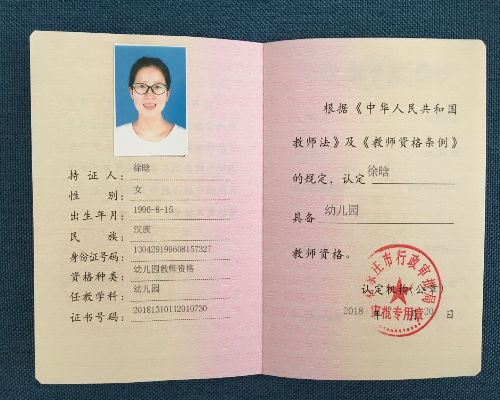 持证人： 徐晗
性别： 女
出生年月： 1996-8-15
民族： 汉族
身份证号码： 130429199608157327
资格种类： 幼儿园教师资格
任教学科： 幼儿园
证书号码： 20181310112010730
根据《中华人民共和国
教师法》及《教师资格条例》
的规定，认定 徐晗
具备 幼儿园
教师资格。
认定机构(公章)
2018 年 月 30 日
庄市行政审批局
审批专用章